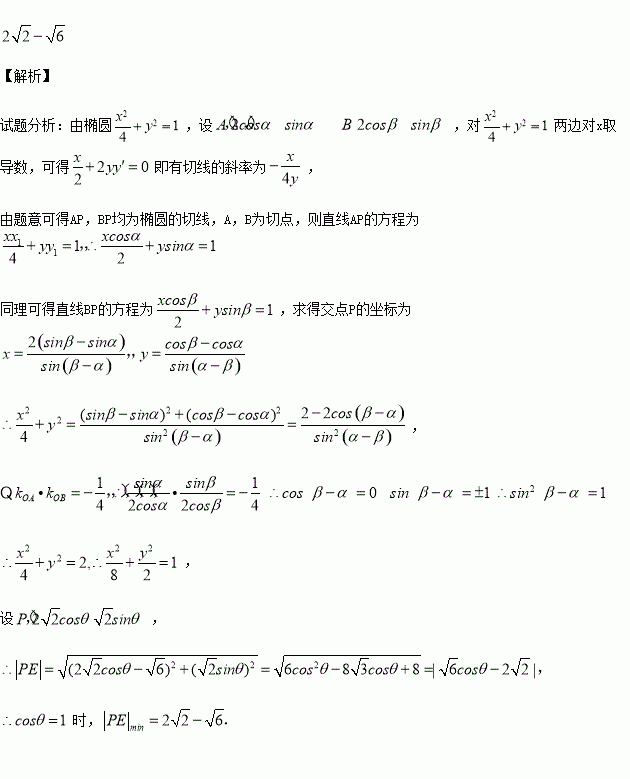 2√2−√6
【解析】
试题分析：由椭圆x²/4+y²=1，设A 2cosα sinα B 2cosβ sinβ，对x²/4+y²=1两边对x取
导数，可得x/2+2yy′=0即有切线的斜率为−x/4y，
由题意可得AP，BP均为椭圆的切线，A，B为切点，则直线AP的方程为
xx₁/4+yy₁=1,,∴xcosα/2+ysinα=1
同理可得直线BP的方程为xcosβ/2+ysinβ=1，求得交点P的坐标为
x=2(sinβ−sinα)/sin(β−α),,y=(cosβ−cosα)/sin(α−β)
∴x²/4+y²=((sinβ−sinα)²+(cosβ−cosα)²)/sin²(β−α)=(2−2cos(β−α))/sin²(α−β)，
Q k_OA•k_OB=−1/4,,∴sinα/2cosα•sinβ/2cosβ=−1/4 ∴cos β−α =0 sin β−α =±1 ∴sin² β−α =1
∴x²/4+y²=2,∴x²/8+y²/2=1，
设P 2√2cosθ √2sinθ，
∴|PE|=√((2√2cosθ−√6)²+(√2sinθ)²)=√(6cos²θ−8√3cosθ+8)=|√6cosθ−2√2|，
∴cosθ=1时，|PE|min=2√2−√6.